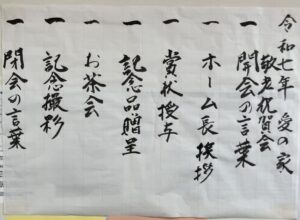 令和七年 愛の家
敬老祝賀会
一 開会の言葉
一 ホーム長挨拶
一 賞状授与
一 記念品贈呈
一 お茶会
一 記念撮影
一 閉会の言葉